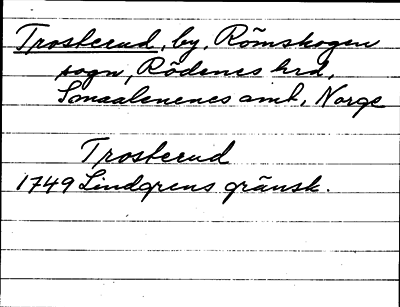 Trosterud, by, Römskogen
sogn, Rödenes hrd,
Smaalenenes amt, Norge
Trosterud
1749 Lindgrens gränsk.